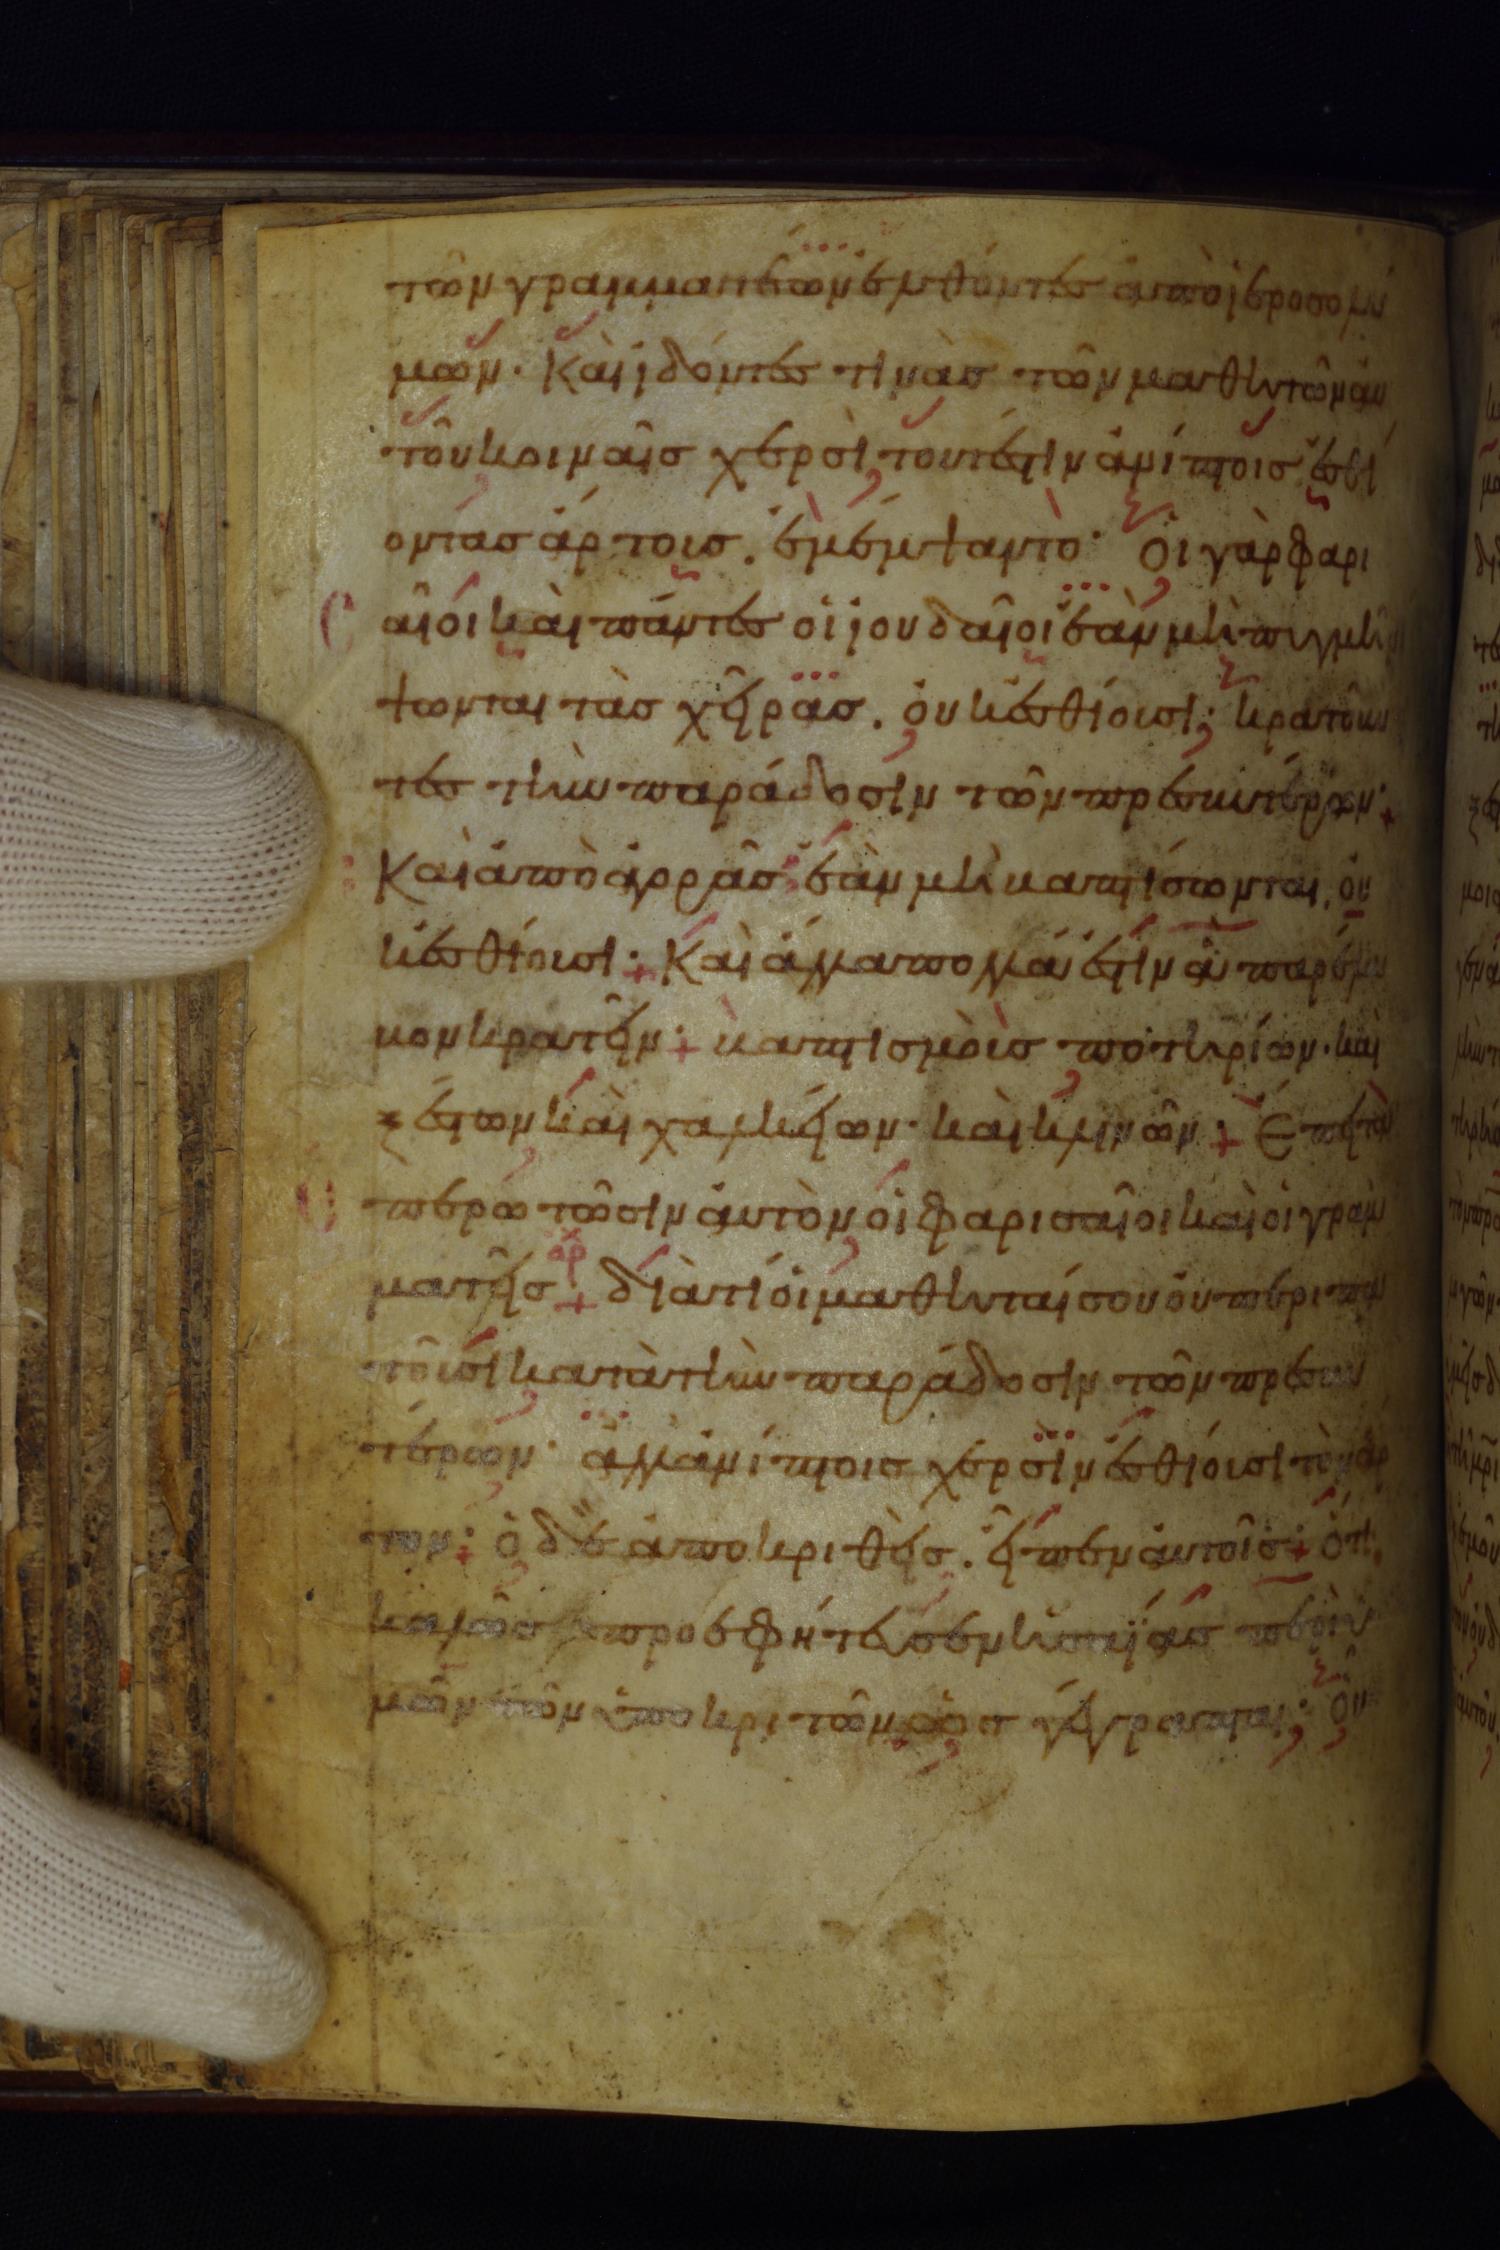 τῶν γραμματέων ἐλθόντες ἀπὸ ἱεροσολύ
μων· Καὶ ἰδόντες τινὰς τῶν μαθητῶν αὐ
τοῦ κοιναῖς χερσὶ τουτέστιν ἀνίπτοις ἐσθί
οντας ἄρτοις. ἐμέμψαντο· Οἱ γὰρ φαρι
αῖοι καὶ πάντες οἱ ἰουδαῖοι ἐὰν μὴ πυγμῇ
ψωνται τὰς χεῖρας. οὐκ ἐσθίουσι· κρατοῦν
τες τὴν παράδοσιν τῶν πρεσβυτέρων·
Καὶ ἀπὸ ἀγορᾶς ἐὰν μὴ βαπτίσωνται, οὐ
κ ἐσθίουσι· Καὶ ἄλλα πολλά ἐστιν ἃ παρέλα
βον κρατεῖν· βαπτισμοὺς ποτηρίων· καὶ
ξεστῶν καὶ χαλκείων· καὶ κλινῶν· Ἔπειτα
περωτῶσιν αὐτὸν οἱ φαρισαῖοι καὶ οἱ γραμ
ματεῖς· διατί οἱ μαθηταί σου οὐ περιπα
τοῦσι κατὰ τὴν παράδοσιν τῶν πρεσβυ
τέρων· ἀλλὰ ἀνίπτοις χερσὶν ἐσθίουσι τὸν ἄρ
τον· ὁ δὲ ἀποκριθεὶς. εἶπεν αὐτοῖς· ὅτι
καλῶς προεφήτευσεν ἡσαΐας περὶ ὑ
μῶν τῶν ὑποκριτῶν ὡς γέγραπται· Οὗ